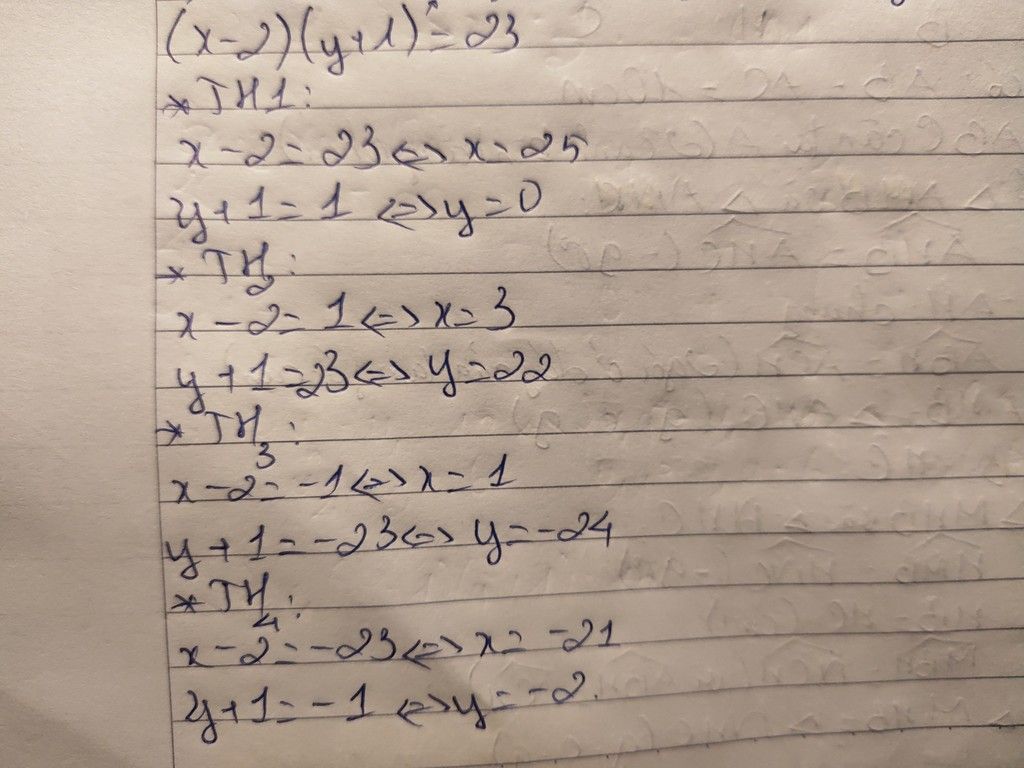 (x-2)(y+1)=23
* TH1:
x-2=23<=>x=25
y+1=1 <=>y=0
* TH2:
x-2=1<=>x=3
y+1=23<=>y=22
* TH3:
x-2=-1<=>x=1
y+1=-23<=>y=-24
* TH4:
x-2=-23<=>x=-21
y+1=-1 <=>y=-2.